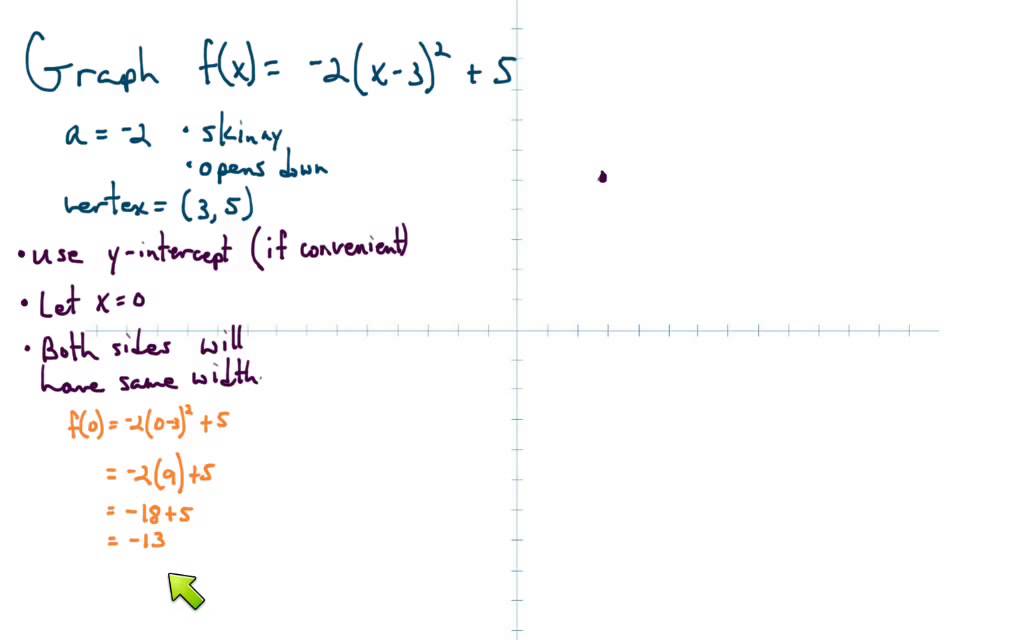 Graph f(x) = -2(x-3)² + 5
a = -2 • skinny
• opens down
vertex = (3, 5)
• use y-intercept (if convenient)
• Let x = 0
• Both sides will
have same width.
f(0) = -2(0-3)² + 5
= -2(9) + 5
= -18 + 5
= -13